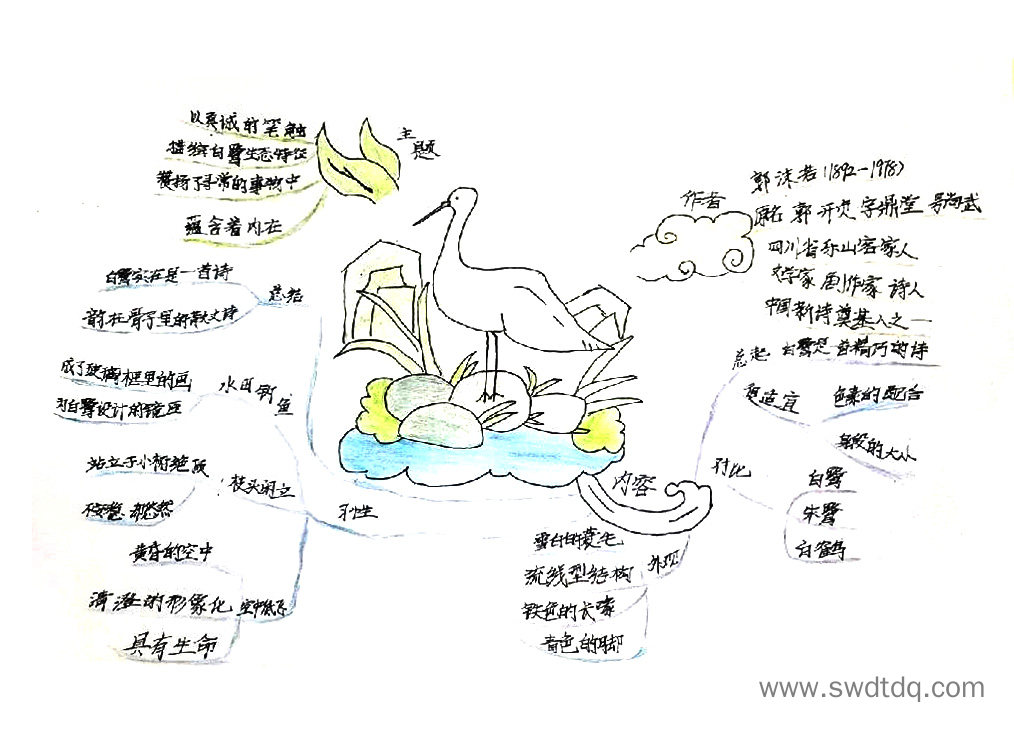 主题
以真诚的笔触
描绘白鹭生态特征
赞扬了寻常的事物中
蕴含着内在
作者
郭沫若(1892-1978)
原名 郭开贞 字鼎堂 号尚武
四川省乐山客家人
文学家 剧作家 诗人
中国新诗奠基人之一
内容
总起
白鹭是一首精巧的诗
更适宜
色素的配合
身段的大小
对比
白鹭
朱鹭
白鹤
外观
雪白的蓑毛
流线型结构
铁色的长喙
青色的脚
总结
白鹭实在是一首诗
韵在骨子里的散文诗
水田钓鱼
成了玻璃框里的画
为白鹭设计的镜匣
枝头闲立
站立于小树绝顶
黄昏的空中
清澄的形象化
具有生命